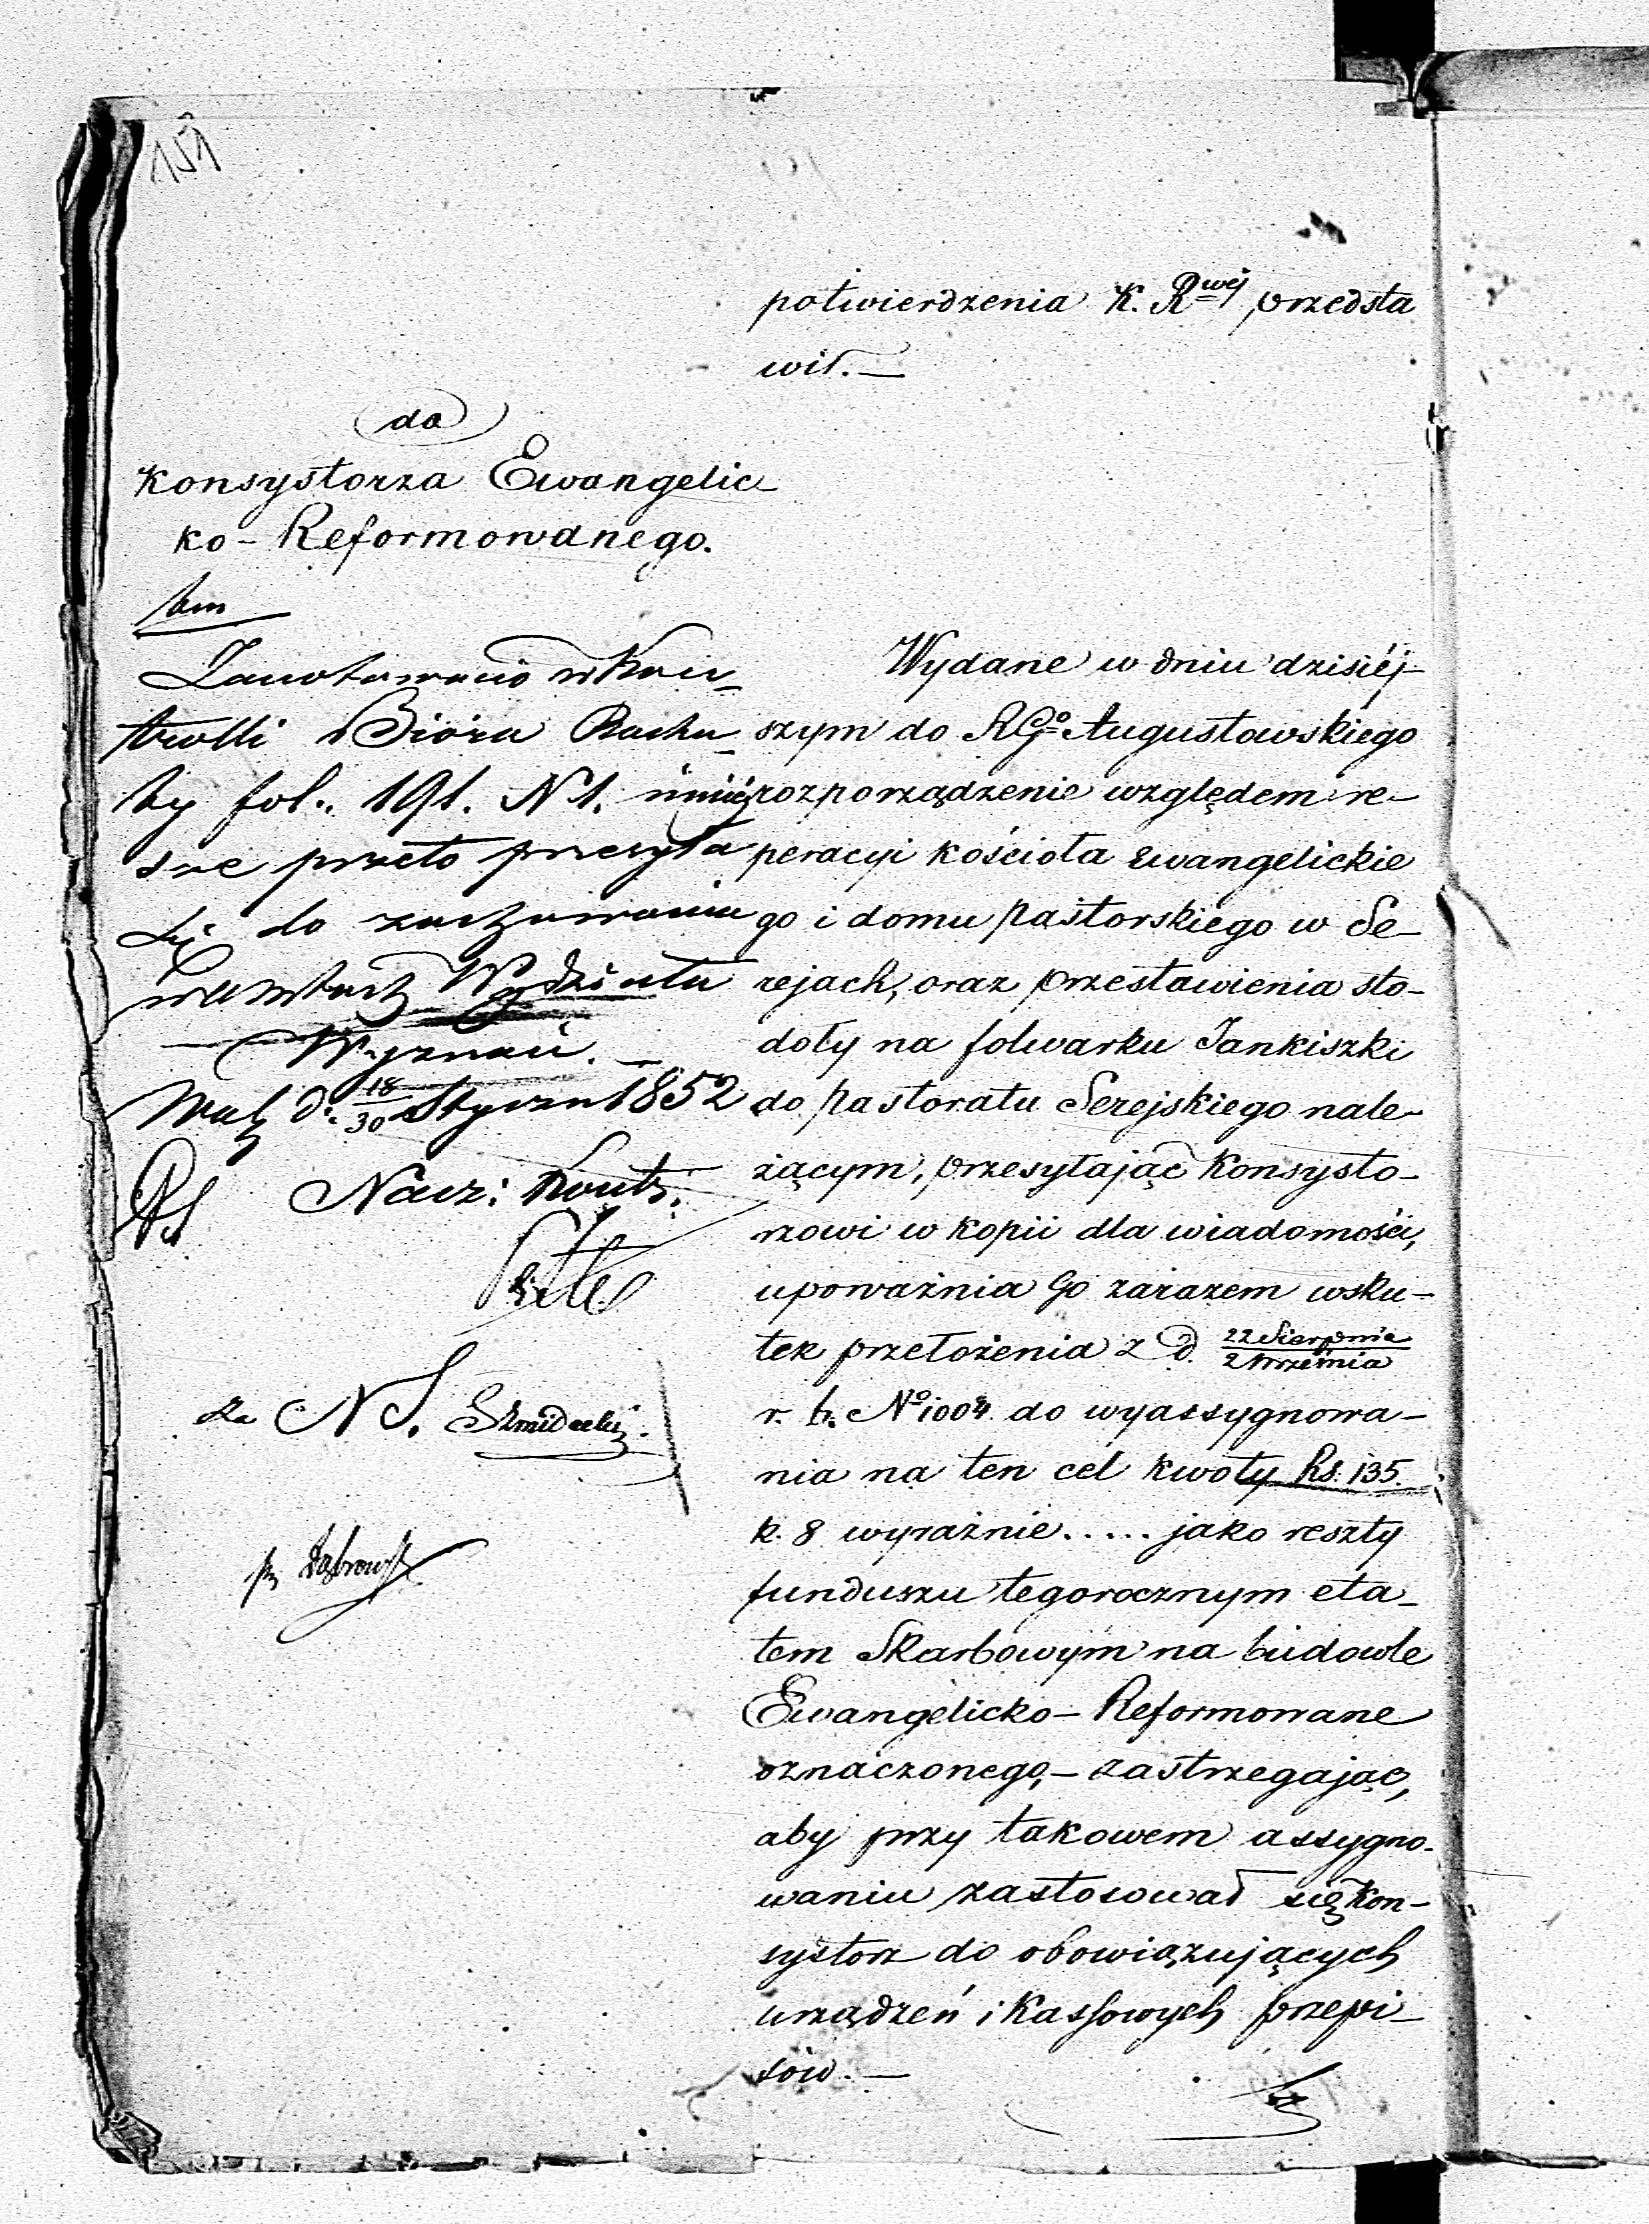 151
potwierdzenia K. Rwéj przedsta
wił. —
do
Konsystorza Ewangelic-
ko-Reformowanego.
Zanotowano w Kon-
trolli Bióra Rachu-
by fol. 191. N 1.
sze przeto przesyła
się do zachowania
w aktach Wydziału
Wyznań. —
d. 18/30 Styczn 1852
Nacz: Kontr:
za N S.
Wydane w dniu dzisiéj-
szym do RGo Augustowskiego
rozporządzenie względem re-
peracyi kościoła ewangelickie
go i domu pastorskiego w Se-
rejach, oraz przestawienia sto-
doły na folwarku Jankiszki
do pastoratu Serejskiego nale-
żącym, przesyłając Konsysto-
rzowi w kopii dla wiadomości,
upoważnia Go zarazem wsku-
tek przełożenia z d. 22 Sierpnia / 2 Września
r. b. No 1004 do wyassygnowa-
nia na ten cel kwoty Rs. 135.
k. 8 wyraźnie ..... jako reszty
funduszu tegorocznym eta-
tem Skarbowym na budowle
Ewangelicko-Reformowane
oznaczonego, — zastrzegając,
aby przy takowem assygno-
waniu zastosował się Kon-
systorz do obowiązujących
urządzeń i Kassowych przepi-
sów. —